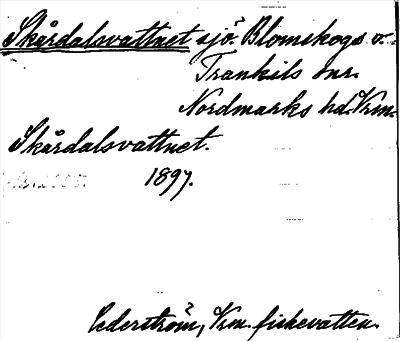 Skårdalsvattnet sjö? Blomskogs o.
Trankils snr.
Nordmarks hd. Vrm.
Skårdalsvattnet.
1897.
Cederström, Vrm. fiskevatten.